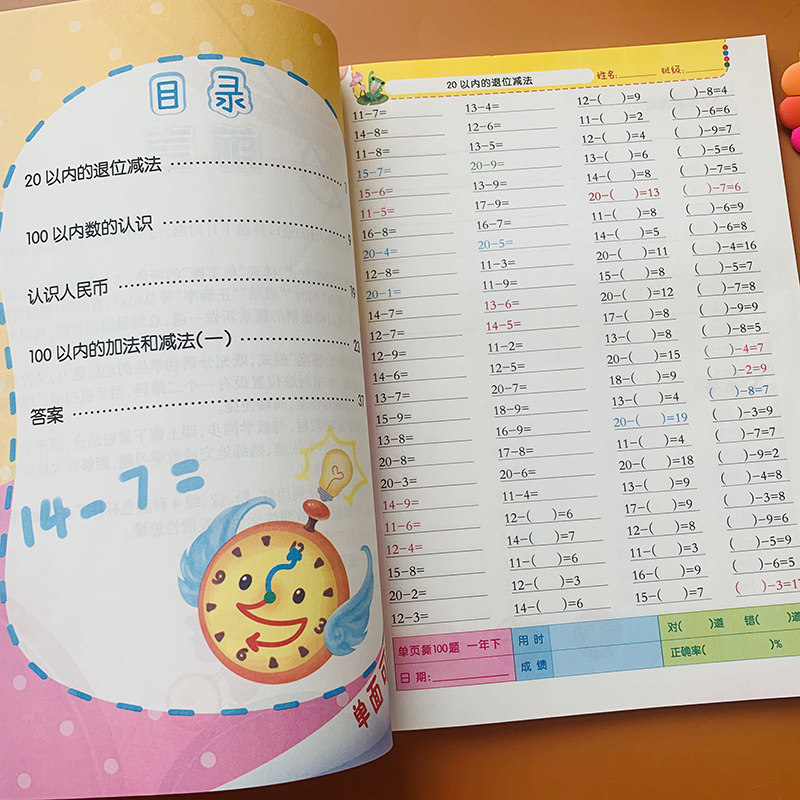 目录
20 以内的退位减法 1
100 以内数的认识 9
认识人民币 19
100 以内的加法和减法(一) 23
答案 37
14-7=
单面
20 以内的退位减法
姓名: 班级:
11-7=
14-8=
11-8=
15-7=
15-6=
11-5=
16-8=
20-4=
12-8=
20-1=
14-7=
12-7=
12-9=
14-6=
13-7=
15-9=
13-8=
20-8=
20-3=
14-9=
11-6=
12-4=
15-8=
20-2=
12-3=
13-4=
12-6=
13-5=
20-9=
13-9=
17-9=
16-7=
20-5=
11-3=
11-9=
13-6=
14-5=
11-2=
12-5=
20-7=
18-9=
16-9=
17-8=
20-6=
11-4=
12-( )=6
14-( )=7
11-( )=6
12-( )=3
14-( )=6
12-( )=9
11-( )=2
12-( )=4
13-( )=6
14-( )=8
20-( )=13
11-( )=8
14-( )=5
20-( )=11
15-( )=8
20-( )=12
17-( )=8
13-( )=8
20-( )=15
18-( )=9
13-( )=4
20-( )=19
11-( )=4
20-( )=18
13-( )=9
17-( )=9
12-( )=8
11-( )=3
16-( )=9
15-( )=7
( )-8=4
( )-6=6
( )-9=7
( )-5=6
( )-7=5
( )-7=6
( )-6=9
( )-6=8
( )-4=16
( )-5=7
( )-7=8
( )-9=9
( )-8=5
( )-4=7
( )-2=9
( )-8=7
( )-3=9
( )-7=7
( )-9=2
( )-4=8
( )-3=8
( )-9=6
( )-5=9
( )-6=5
( )-3=17
单页撕100题 一年下
日期:
用时
成绩
对( )道 错( )道
正确率( )%